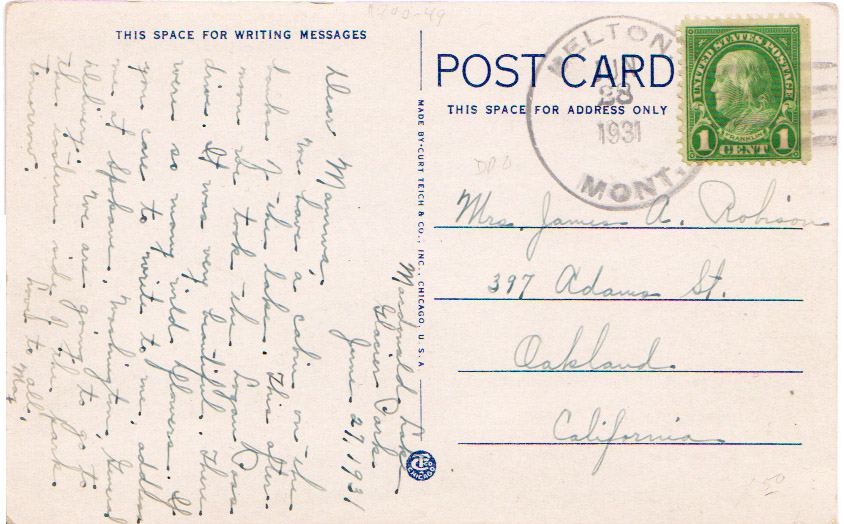 THIS SPACE FOR WRITING MESSAGES
Macdonald Lake
Glacier Park
June 27, 1931
Dear Mamma,
We have a cabin on the
banks of the lake. This after-
noon we took the Logan Pass
drive. It was very beautiful. There
were so many wild flowers. If
you care to write to me, address
me at Spokane, Washington, General
Delivery. We are going to go to
the eastern side of the park
tomorrow.
Love to all,
May
MADE BY CURT TEICH & CO., INC., CHICAGO, U.S.A.
POST CARD
THIS SPACE FOR ADDRESS ONLY
BELTON
JUN
28
1931
MONT.
UNITED STATES POSTAGE
FRANKLIN
1 CENT 1
DPO
Mrs. James A. Robison
397 Adams St.
Oakland
California
CHICAGO